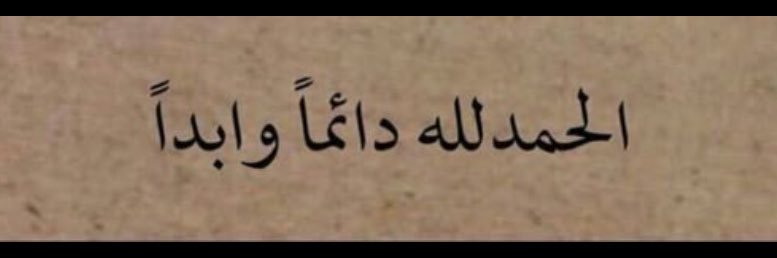 الحمدلله دائماً وابداً